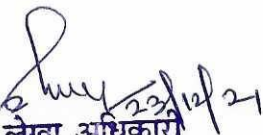 23/12/21
लेखा अधिकारी